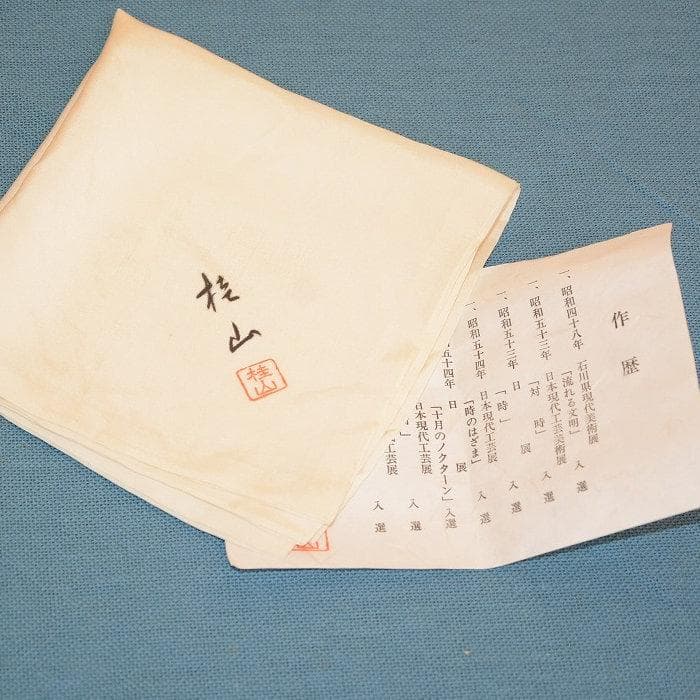 桂山
桂山
作歴
一、昭和四十八年 石川県現代美術展
「流れる文明」 入選
一、昭和五十三年 日本現代工芸美術展
「対時」 入選
一、昭和五十三年 日展
「時」 入選
一、昭和五十四年 日本現代工芸展
「時のはざま」 入選
五十四年 日展
「十月のノクターン」 入選
日本現代工芸展
入選
工芸展
入選